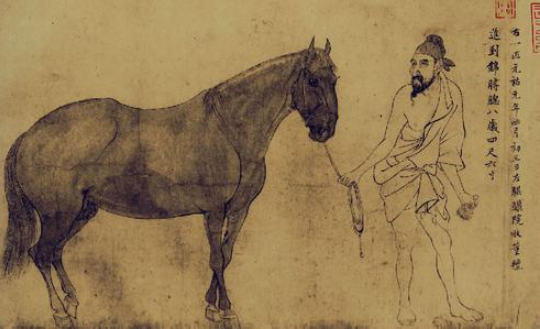 右一匹元祐元年四月初三日左騏驥院收董氊
進到錦膊驄八歲四尺六寸